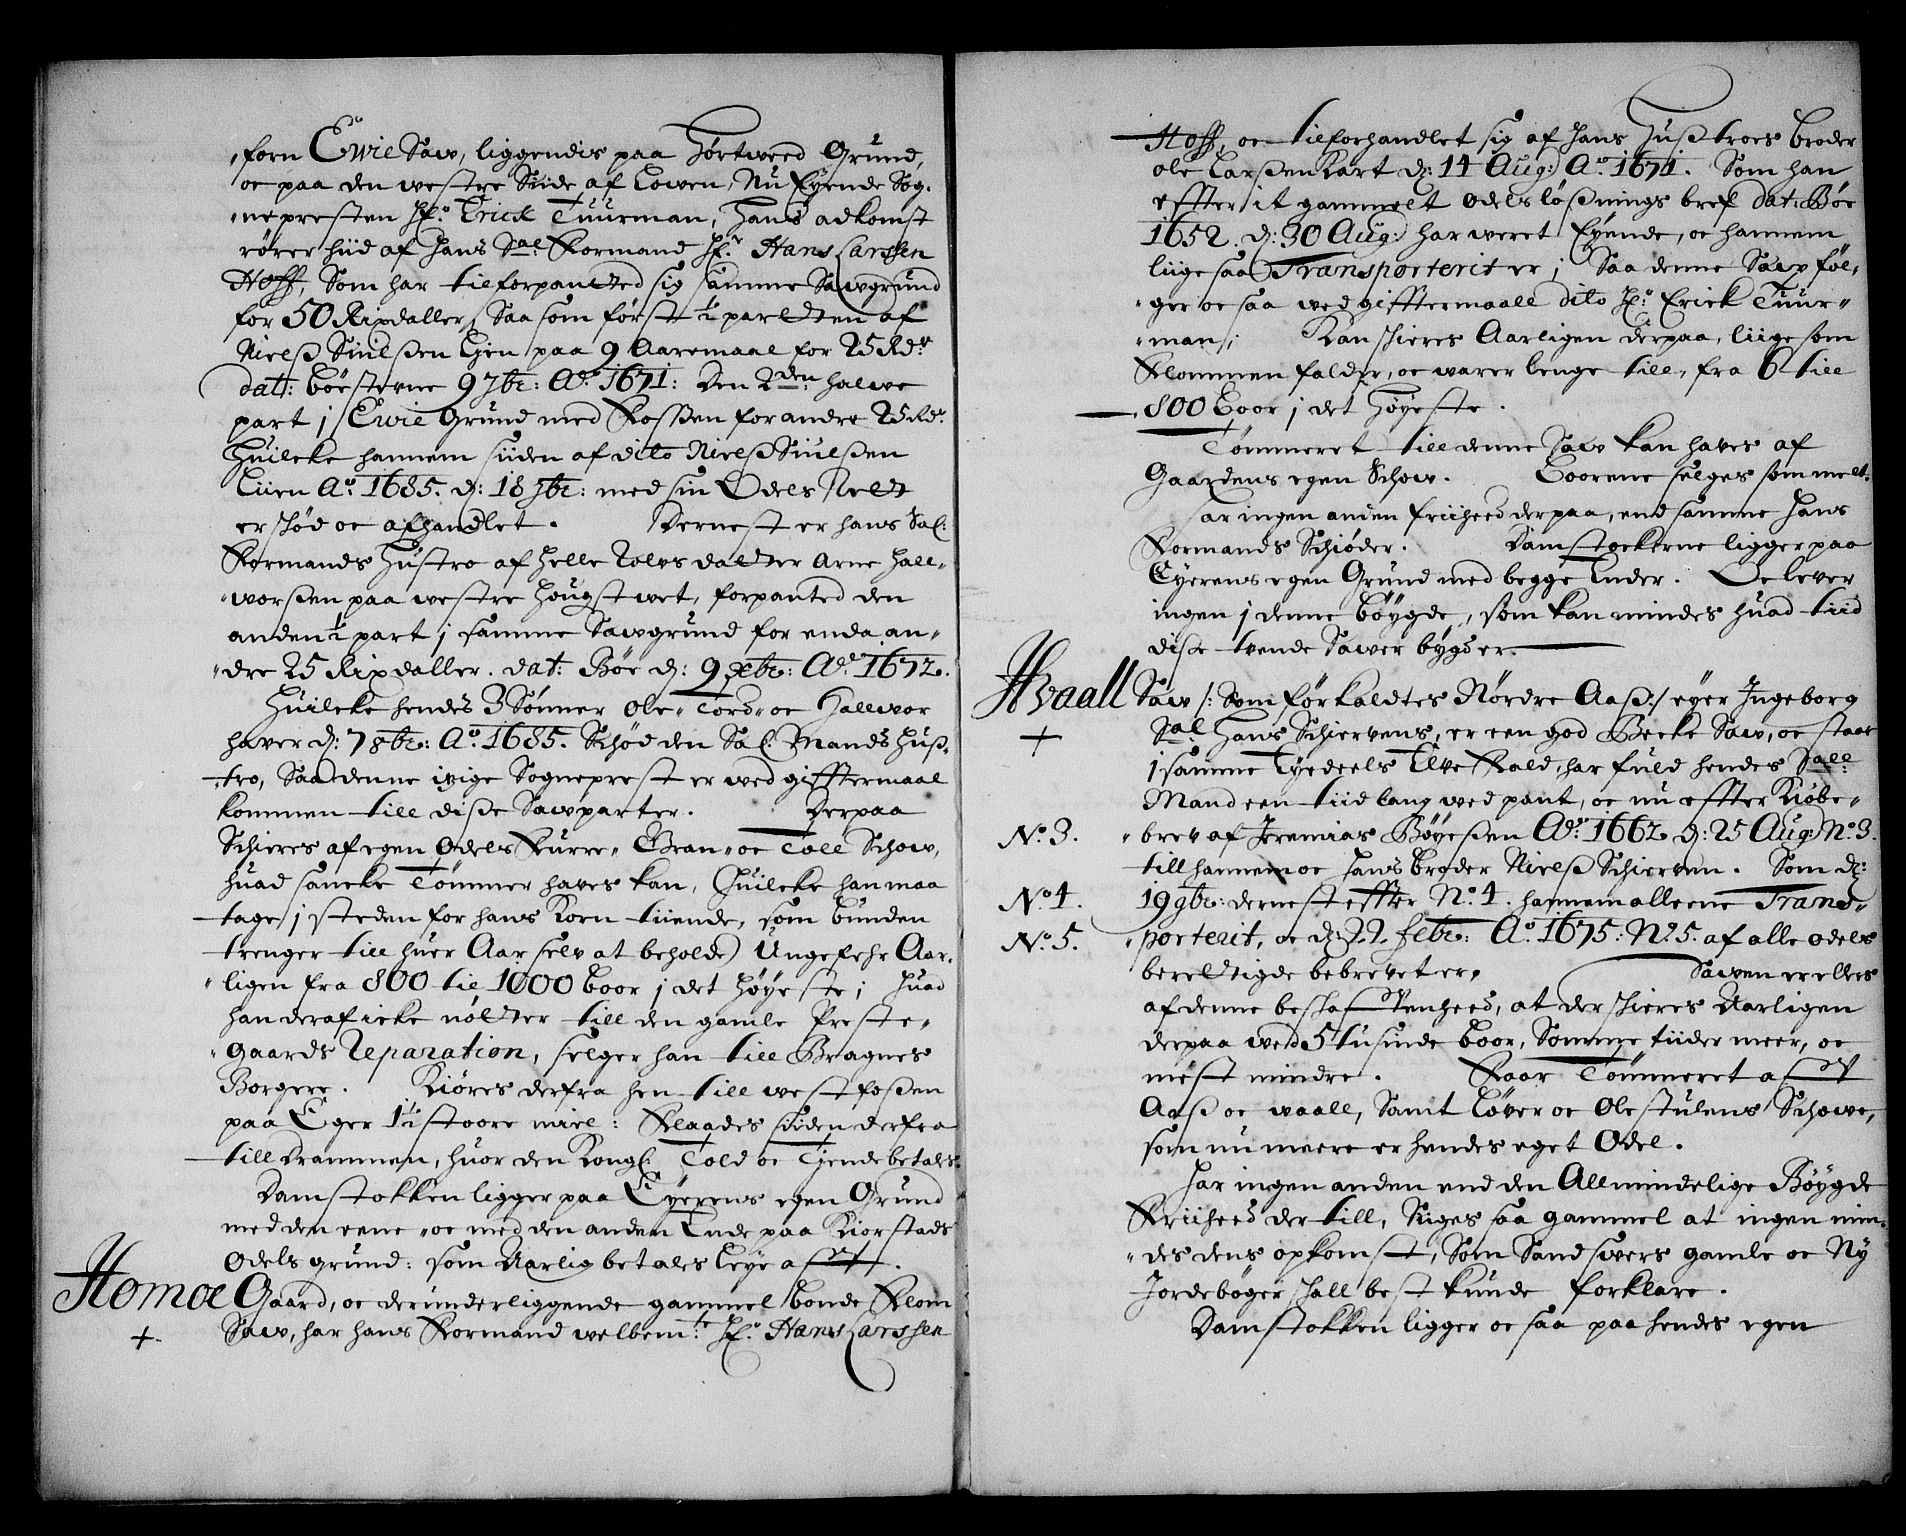 forn Ewie Saw, liggendis paa Hørtweed Grund,
oc paa den westre Siide af Lowen, Nu Eyende Sog-
nepresten Hr. Erick Tuurman; hans adkomst
rører hiid af hans Sal: Formand Hr. Hans Larssen
Hoff, Som har tilforpanted sig samme Sawgrund
for 50 Rixdaller, Saa som først ½ parten af
Nielß Siulßen Lien paa 9 Aaremaal for 25 Rdr
dat: Bøestevne 9 7br: Ao. 1671: Den 2den halwe
part i Ewie Grund med Foßen for andre 25 Rdr.
Huilcke hannem siiden af dito Nielß Siulßen
Liien Ao. 1685. d: 18 9br: med sin Odels Rett
er skød oc afhandlet. Dernest er hans Sal:
Formands Hustro af Helle Rolvs datter Arne Hall-
worßen paa westre Hougstwet, forpanted den
anden ½ part i samme Sawgrund for enda an-
dre 25 Rixdaller. dat: Bøe d: 9 xbr: Ao. 1672.
Huilcke hendes 3 Sønner Ole, Tord, oc Hallwor
hawer d: 7 8br: Ao. 1685. Schød den Sal: Mands Huß-
tro, Saa denne ivige Sogneprest er wed gifftermaal
kommen till diße Sawparter. Derpaa
Schieres af egen Odels Furre, Gran, oc Toll Schow,
huad sancke Tømmer haves kan, (Huilcke han maa
tage i steden for hans Korn tiiende, som bunden
trenger till huer Aar selv at beholde) Ungefehr Aar-
ligen fra 800 til 1000 Boor i det høyeste; huad
han deraf icke nøtter till den gamle Preste-
gaards Reparation, selger han till Bragnes
Borgere. Kiøres derfra hen till westfoßen
paa Eger 1½ stoore miel: Flaades siiden derfra
till Drammen, huor den Kongl: Told oc Tjende betales.
Damstokken ligger paa Eyerens egen Grund
med den eene, oc med den anden Ende paa Kiørstads
Odels grund: som Aarlig betales Leye aff.
Homoe Gaard, oc derunderliggende gammel bonde Flom
+ Saw, har hans Formand welbemte: Hr. Hans Larssen
Hoff, oc tilforhandlet sig af hans Hußtroes broder
Ole Larßen Kart d: 14 Aug: Ao. 1671. Som han
effter it gammelt Odels løßnings bref dat: Bøe
1652. d: 30 Aug: har weret Eyende, oc hannem
liige saa Transporterit er; Saa denne Saw føl-
ger oc saa wed gifftermaall dito Hr. Erick Tuur-
man; Kan schieres Aarligen derpaa, liige som
Flommen falder, oc warer lenge till, fra 6 till
800 Boor i det høyeste.
Tømmeret till denne Saw kan haves af
Gaardens egen Schow. Boorene selges som melt.
har ingen anden friiheed derpaa, end samme hans
Formands Schiøder. Damstockerne ligger paa
Eyerens egen Grund med begge Ender. Oc lever
ingen i denne bøygde, som kan mindes huad tiid
diße tvende Sawer bygd er.
Hvaall Saw /: Som før kaldtes Nørdre Aaß :/ eyer Ingeborg
+ Sal Hans Schiervens, er een god Becke Saw, oc staar
i samme Tyedeels Elve Fald, har fuld hendes Sall:
Mand een tiid lang wed pant, oc nu effter Kiøbe-
No. 3. brev af Jeremias Bøyeßen Ao. 1662. d: 25 Aug: No 3.
till hannem oc hans broder Nielß Schierven. Som d:
No. 4. 19 9br: dernest effter No. 4. hannem alleene Trans-
No. 5. porterit, oc d: 22 febr: Ao. 1675: No. 5: af alle Odels
berettigde bebrevet er. Sawen er ellers
af denne beschaffenheed, at der schieres Aarligen
derpaa wed 5 tusinde boor, Somme tiider meer, oc
mest mindre. Faar Tømmeret aff
Aaß oc waall, Samt Løver oc Olestulens Schowe,
som nu meere er hendes eget Odel.
Har ingen anden end den Allmindelige Bøygde
Friiheed der till, Siiges saa gammel at ingen min-
des dens opkomst, Som Sandswers gamle oc Ny
Jordebøger schall best kunde forklare.
Damstokken ligger oc saa paa hendes egen